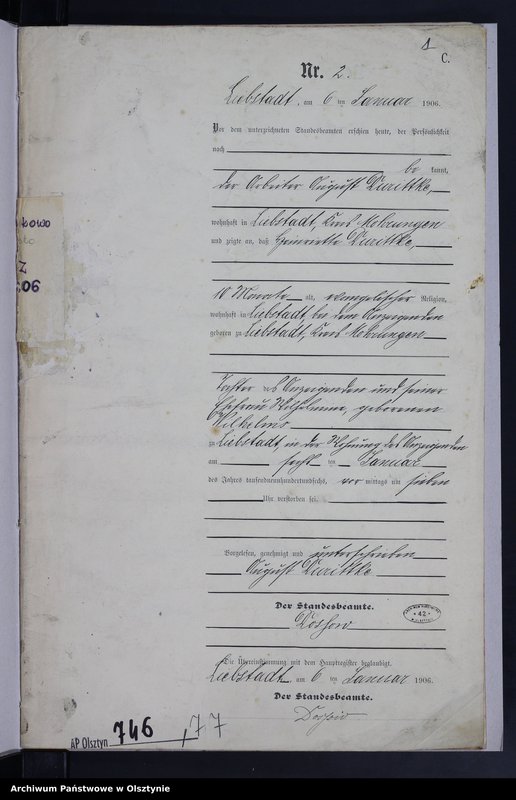 1
C.
Nr. 2.
Liebstadt, am 6 ten Januar 1906.
Vor dem unterzeichneten Standesbeamten erschien heute, der Persönlichkeit
nach
be kannt,
der Arbeiter August
wohnhaft in Liebstadt, Kreis Mohrungen
und zeigte an, daß Henriette
10 Monate alt, evangelischer Religion,
wohnhaft in Liebstadt, bei dem Anzeigenden
geboren zu Liebstadt, Kreis Mohrungen
Tochter des Anzeigenden und seiner
Ehefrau Wilhelmine, geborenen
Wilhelms
zu Liebstadt, in der Wohnung des Anzeigenden
am sechs ten Januar
des Jahres tausendneunhundertundsechs, vor mittags um sieben
Uhr verstorben sei.
Vorgelesen, genehmigt und unterschrieben
August
Der Standesbeamte.
Die Übereinstimmung mit dem Hauptregister beglaubigt.
Liebstadt, am 6 ten Januar 1906.
Der Standesbeamte.
42
AP Olsztyn 746, 77
Archiwum Państwowe w Olsztynie